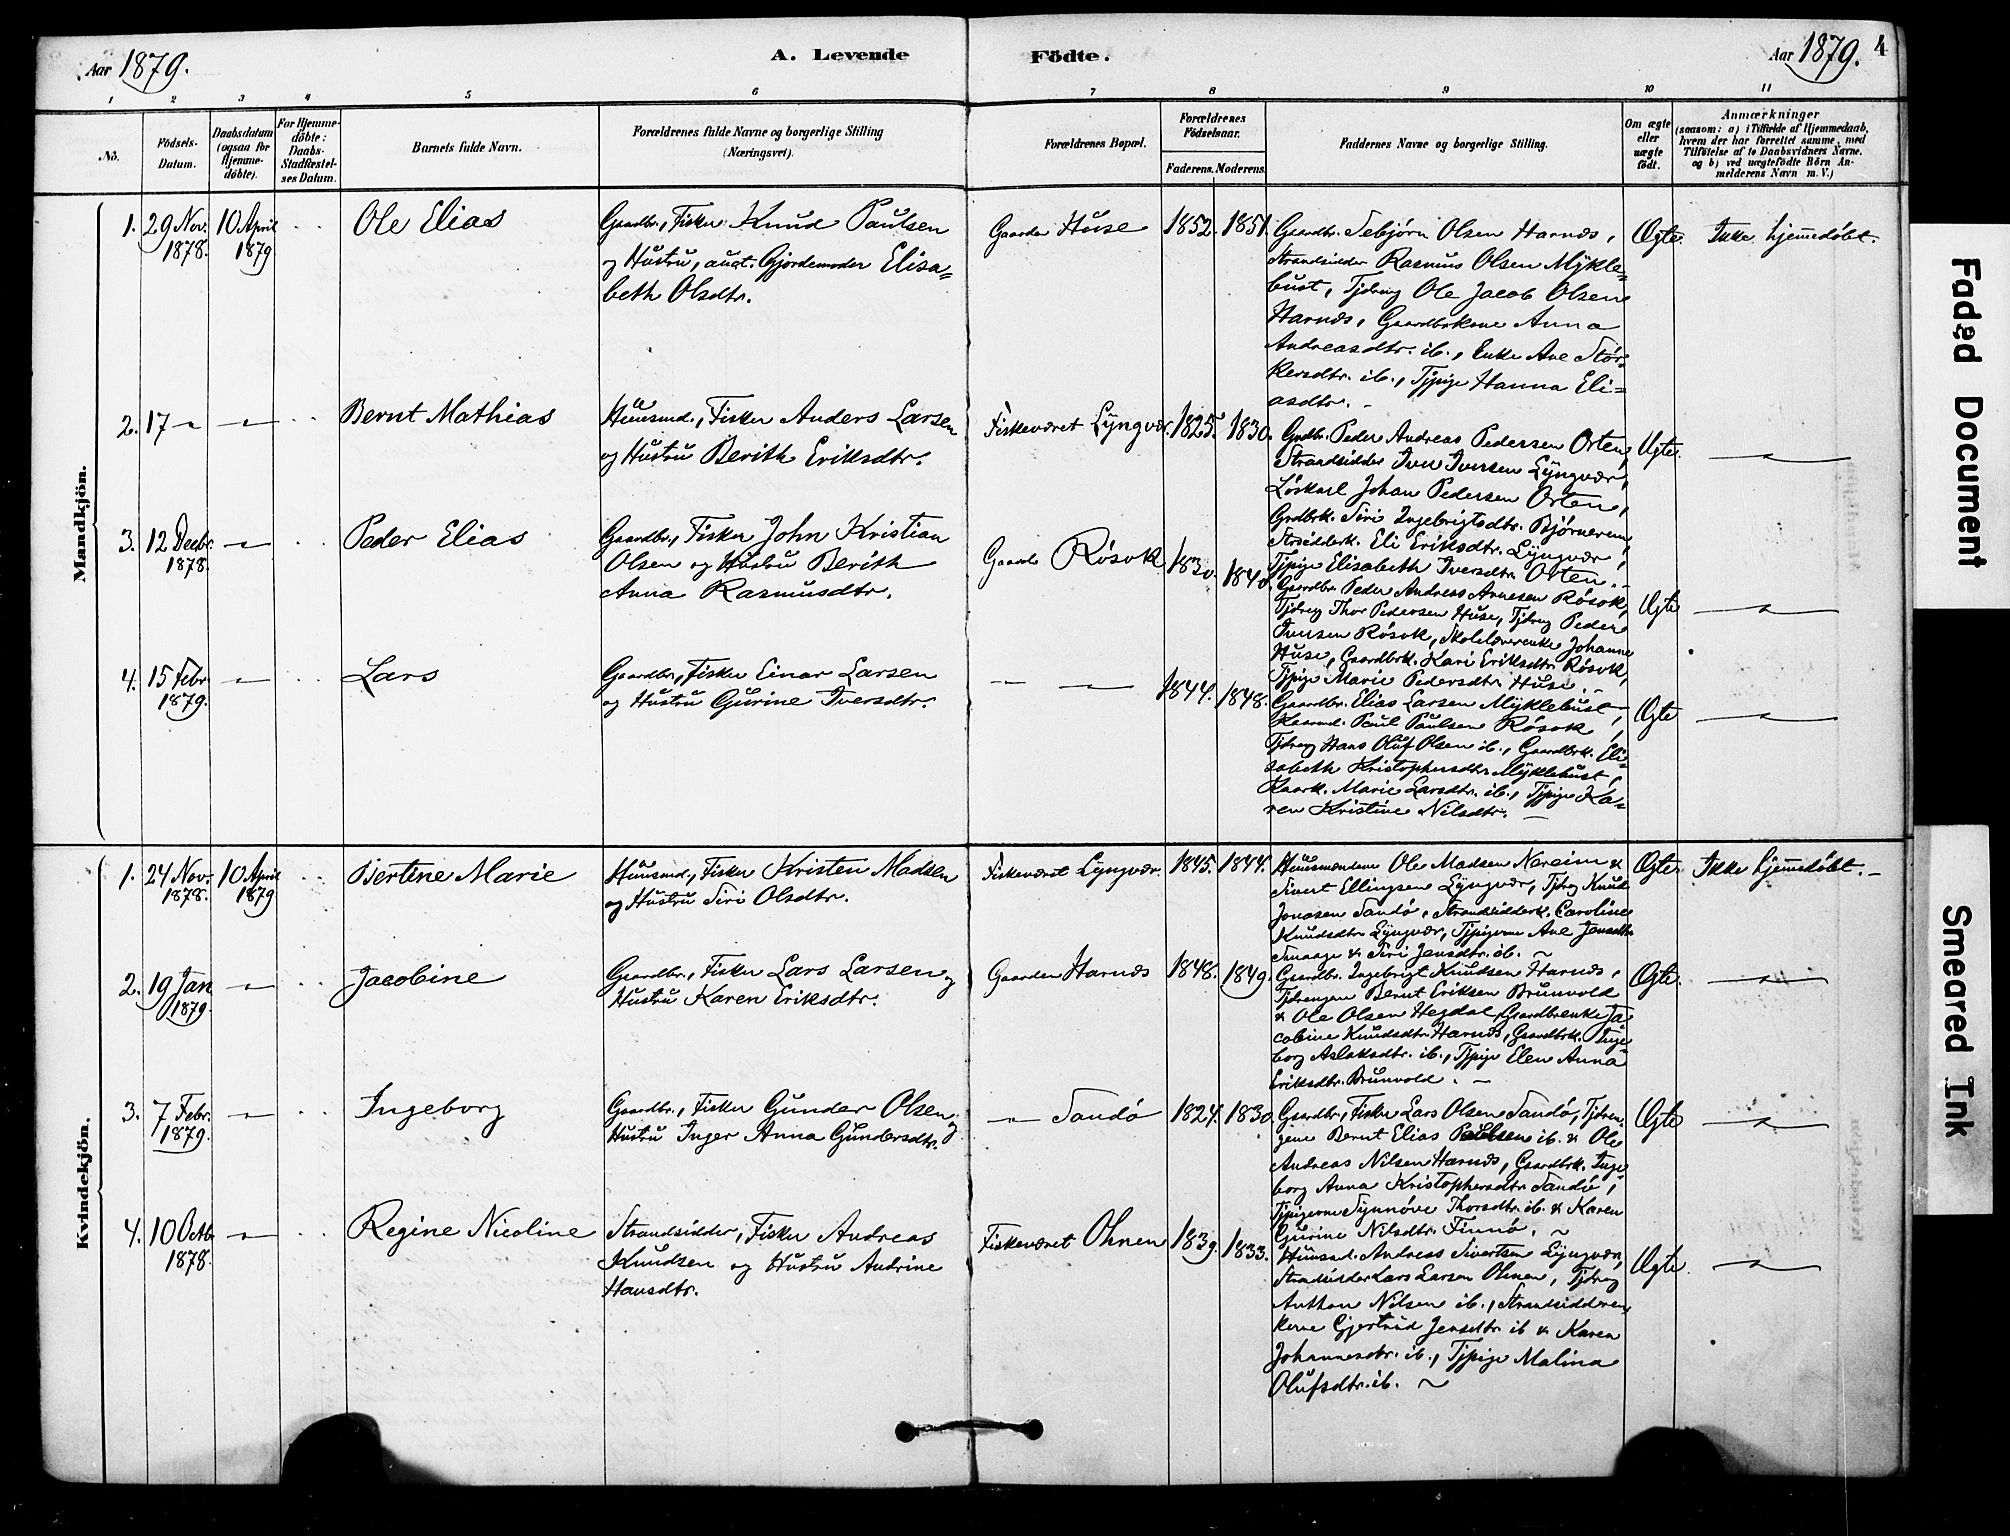 Aar 1879.
A. Levende
Födte.
Aar 1879.
4
1 2 3 4 5 6 7 8 9 10 11
No.
Födsels-
Datum.
Daabsdatum
(ogsaa for
Hjemme-
döbte).
For Hjemme-
döbte:
Daabs-
Stadfæstel-
ses Datum.
Barnets fulde Navn.
Forældrenes fulde Navne og borgerlige Stilling
(Næringsvei).
Forældrenes Bopæl.
Forældrenes
Födselsaar.
Faderens. Moderens.
Faddernes Navne og borgerlige Stilling.
Om ægte
eller
uægte
födt.
Anmærkninger
(saasom: a) i Tilfælde af Hjemmedaab,
hvem der har forrettet samme, med
Tilföielse af to Daabsvidners Navne.
og b) ved uægtefödte Börn An-
melderens Navn m. V.)
Mandkjön.
1. 29 Nov.
1878.
10 April
1879
Ole Elias
Gaardbr., Fisker Knud Paulsen
og Hustru, auct. Gjordemoder Elisa=
beth Olsdtr.
Gaarden Huse
1852. 1851.
Gaardbr. Sebjørn Olsen Harnds,
Strandsidder Rasmus Olsen Mykle=
bust, Tjdreng Ole Jacob Olsen
Harnds, Gaardbrkone Anna
Andreasdtr. ib., Enke Ane Stør-
kersdtr. ib., Tjpige Hanna Eli=
asdtr. -
Ægte.
Ikke hjemmedøbt.
2. 17 -"-
-"-
Bernt Mathias
Huusmd., Fisker Anders Larsen
og Hustru Berith Eriksdtr.
Fiskeværet Lyngvær.
1825. 1830.
Grdbr. Peder Andreas Pedersen Orten,
Strandsidder Iver Iversen Lyngvær,
Løskarl Johan Pedersen Orten,
Grdbrk. Siri Ingebrigtsdtr. Bjørnerem,
Strsidderk. Eli Eriksdtr. Lyngvær,
Tjpige Elisabeth Iversdtr. Orten. -
Ægte.
-"-
3. 12 Decbr.
1878.
-"-
Peder Elias
Gaardbr., Fisker John Kristian
Olsen og Hustru Berith
Anna Rasmusdtr.
Gaarden Røsok
1830. 1840.
Gaardbr. Peder Andreas Arnesen Røsok,
Tjdreng Thor Pedersen Huse, Tjdreng Peder
Iversen Røsok, Skolelærerenke Johanne
Huse, Gaardbrk. Kari Eriksdtr. Røsok,
Tjpige Marie Pedersdtr. Huse. -
Ægte
-"-
4. 15 Febr.
1879.
-"-
Lars
Gaardbr., Fisker Einar Larsen
og Hustru Gurine Iversdtr.
-"- -"-
1844. 1848.
Gaardbr. Elias Larsen Myklebust,
Kaarmd. Paul Paulsen Røsok,
Tjdreng Hans Oluf Olsen ib., Gaardbrk. Eli-
sabeth Kristophersdtr. Myklebust,
Kaark. Marie Larsdtr. ib., Tjpige Ka-
ren Kristine Nilsdtr. -
Ægte
-"-
Kvindekjön.
1. 24 Nov.
1878.
10 April
1879
Bertine Marie
Huusmd., Fisker Kristen Madsen
og Hustru Siri Olsdtr.
Fiskeværet Lyngvær.
1845. 1844.
Huusmændene Ole Madsen Nereim &
Sivert Ellingsen Lyngvær, Tjdreng Knud
Jonasen Sandø, Strandsidderk. Caroline
Knudsdtr. Lyngvær, Tjpigerne Ane Jensdtr.
& Siri Jensdtr. ib. -
Ægte.
Ikke hjemmedøbt. -
2. 19 Jan.
1879.
-"-
Jacobine
Gaardbr., Fisker Lars Larsen og
Hustru Karen Eriksdtr.
Gaarden Harnds
1848. 1849.
Gaardbr. Ingebrigt Knudsen Harnds,
Tjdrengene Bernt Eriksen Brunvold
& Ole Olsen Hegdal, Gaardbrenke Ja-
cobine Knudsdtr. Harnds, Gaardbrk. Inge-
borg Aslaksdtr. ib., Tjpige Elen Anna
Eriksdtr. Brunvold. -
Ægte.
-"-
3. 7 Febr.
1879.
-"-
Ingeborg
Gaardbr., Fisker Gunder Olsen og
Hustru Inger Anna Gundersdtr.
-"- Sandø
1824. 1830.
Gaardbr., Fisker Lars Olsen Sandø, Tjdren-
gene Bernt Elias Paulsen ib. & Ole
Andreas Nilsen Harnds, Gaardbrk. Inge-
borg Anna Kristophersdtr. Sandø,
Tjpigerne Synnøve Thorsdtr. ib. & Karen
Gurine Nilsdtr. Finnø. -
Ægte
-"-
4. 10 Octb.
1878.
-"-
Regine Nicoline
Strandsidder, Fisker Andreas
Knudsen og Hustru Andrine
Hansdtr.
Fiskeværet Ohnen
1839. 1833.
Huusmd. Andreas Sivertsen Lyngvær,
Strandsidder Lars Larsen Ohnen, Tjdreng
Anthon Nilsen ib., Strandsidderen-
kerne Gjertrud Jensdtr. ib & Karen
Johannesdtr. ib., Tjpige Malina
Olufsdtr. ib. -
Ægte.
-"-
Faded Document
Smeared Ink